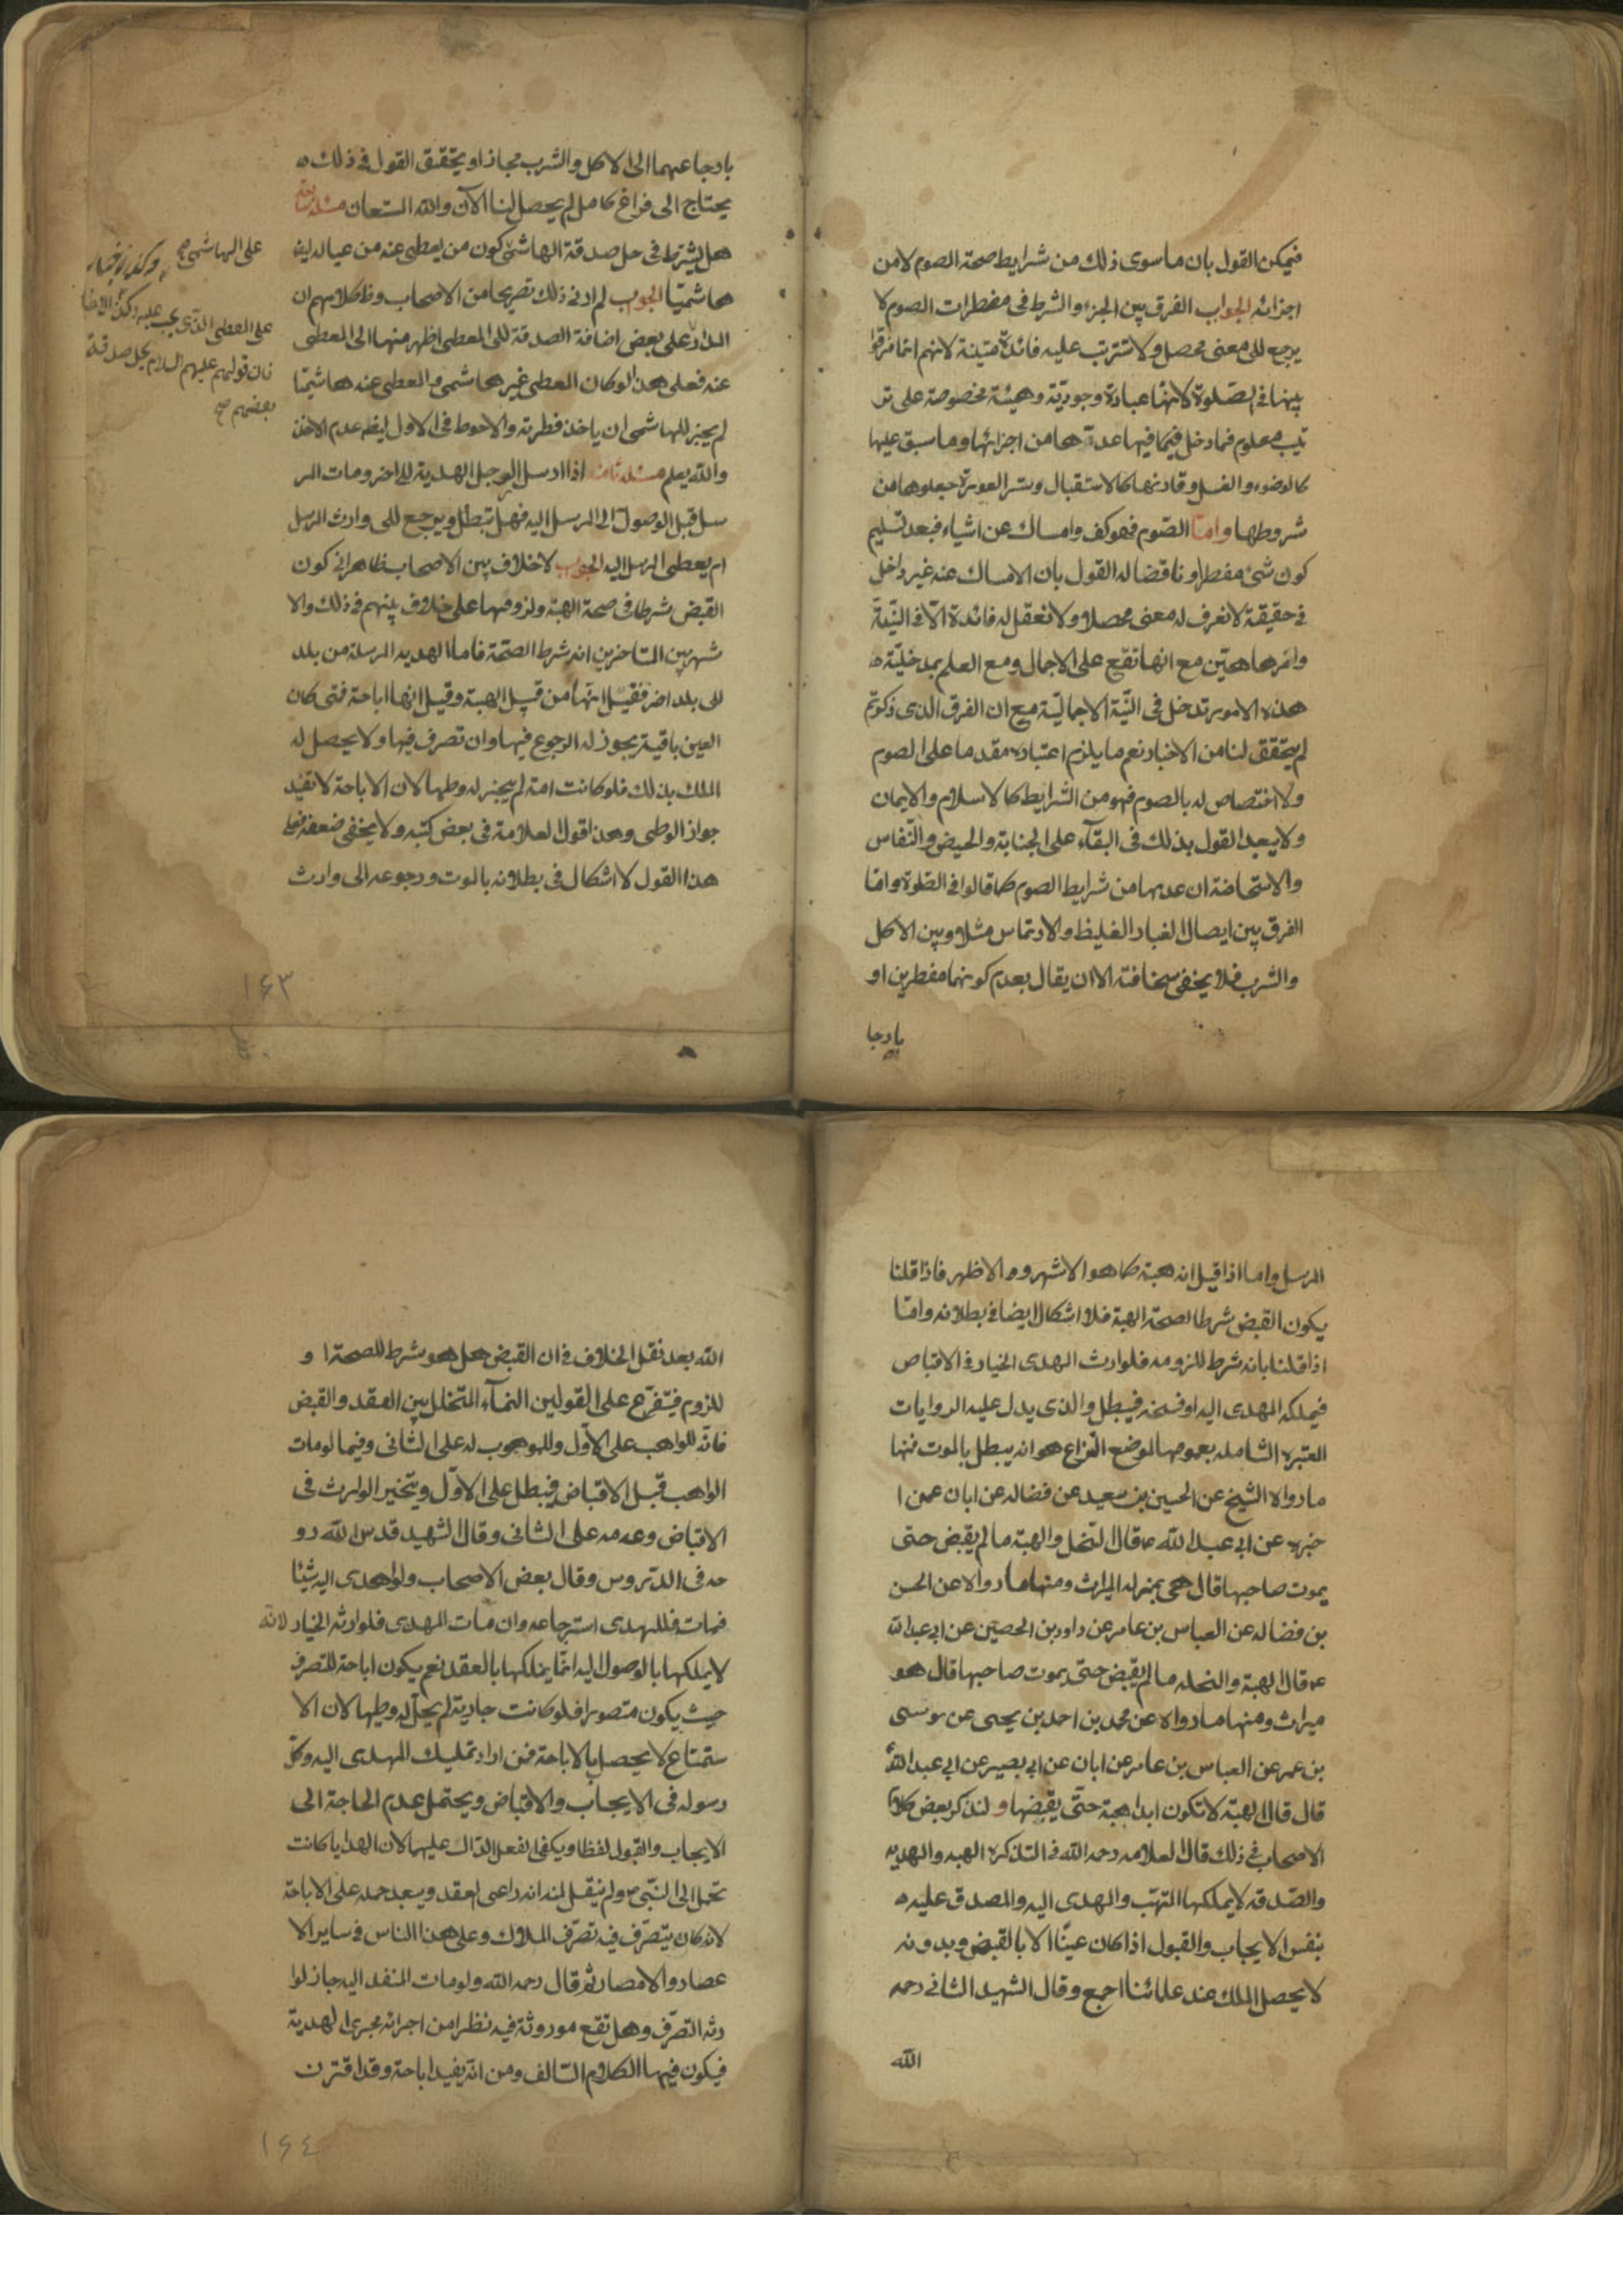 فيمكن القول بان ما سوى ذلك من شرايط صحة الصوم لا من
اجزائه الجواب الفرق بين الجزء والشرط فى مفطرات الصوم لا
يرجع الى معنى محصل ولا تترتب عليه فائدة متينة لانهم انما فرقوا
بينها فى الصلوة لانها عبادة وجودية وهيئة مخصوصة على تر
تيب معلوم فما دخل فيها عدة ها من اجزائها وما سبق عليها
كالوضوء والغسل وقارنها كالاستقبال وستر العورة جعلوها من
شروطها واما الصوم فهو كف وامساك عن اشياء فبعد تسليم
كون شئ مفطرا وناقضا له القول بان الامساك عنه غير داخل
فى حقيقة لا نعرف له معنى محصلا ولا نعقل له فائدة الا فى النية
وامرها هين مع انها تقع على الاجمال ومع العلم بمدخلية
هذه الامور تدخل فى النية الاجمالية مع ان الفرق الذى ذكرتم
لم يتحقق لنا من الاخبار نعم ما يلزم اعتباره مقدما على الصوم
ولا اختصاص له بالصوم فهو من الشرايط كالاسلام والايمان
ولا يبعد القول بذلك فى البقاء على الجنابة والحيض والنفاس
والاستحاضة ان عدبها من شرايط الصوم كما قالوا فى الصلوة واما
الفرق بين ايصال الغبار الغليظ والارتماس مثلا وبين الاكل
والشرب فلا يخفى سخافته الا ان يقال بعدم كونهما مفطرين او
بارجا
بارجاعهما الى الاكل والشرب مجازا وتحقيق القول فى ذلك
يحتاج الى فراغ كامل لم يحصل لنا الآن والله المستعان مسئلة
هل يشترط فى حل صدقة الهاشمى كون من يعطى عنه من عياله ايضا
هاشميا الجواب لم ار فى ذلك تصريحا من الاصحاب وظ كلامهم ان
المدار على بعض اضافة الصدقة الى المعطى اظهر منها الى المعطى
عنه فعلى هذا لو كان المعطى غير هاشمى والمعطى عنه هاشميا
لم يجز للهاشمى ان ياخذ فطرته والاحوط فى الاول ايضا عدم الاخذ
والله يعلم مسئلة ثامنة اذا ارسل الرجل الهدية الى اخر ومات المر
سل قبل الوصول الى المرسل اليه فهل تبطل ويرجع الى وارث المرسل
ام يعطى المرسل اليه الجواب لا خلاف بين الاصحاب ظاهرا فى كون
القبض شرطا فى صحة الهبة ولزومها على خلاف بينهم فى ذلك والا
شهر بين المتاخرين انه شرط الصحة فاما الهدية المرسلة من بلد
الى بلد اخر فقيل انها من قبيل الهبة وقيل انها اباحة فمتى كان
العين باقية يجوز له الرجوع فيها وان تصرف فيها ولا يحصل له
الملك بذلك فلو كانت امة لم يجز له وطيها لان الاباحة لا تفيد
جواز الوطى وهذا قول العلامة فى بعض كتبه ولا يخفى ضعفه فعلى
هذا القول لا اشكال فى بطلانه بالموت ورجوعه الى وارث
على الهاشمى
على المعطى الذى يجب عليه
فان قولهم عليهم السلام يحل صدقة
بعضهم
١٤٣
المرسل واما اذا قيل انه هبة كما هو الاشهر والاظهر فاذا قلنا
يكون القبض شرطا لصحة الهبة فلا اشكال ايضا فى بطلانه واما
اذا قلنا بانه شرط للزومه فلوارث المهدى الخيار فى الاقباض
فيملكه المهدى اليه او فسخه فيبطل والذى يدل عليه الروايات
المعتبرة الشاملة بعمومها لموضع النزاع هو انه يبطل بالموت فمنها
ما رواه الشيخ عن الحسين بن سعيد عن فضالة عن ابان عمن ا
خبره عن ابى عبد الله ع قال النحل والهبة ما لم يقبض حتى
يموت صاحبها قال هى بمنزلة الميراث ومنها ما رواه عن الحسن
بن فضاله عن العباس بن عامر عن داود بن الحصين عن ابى عبد الله
ع قال الهبة والنحلة ما لم يقبض حتى يموت صاحبها قال هو
ميراث ومنها ما رواه عن محمد بن احمد بن يحيى عن موسى
بن عمر عن العباس بن عامر عن ابان عن ابى بصير عن ابى عبد الله
قال قال الهبة لا تكون ابدا هبة حتى يقبضها ولنذكر بعض كلام
الاصحاب فى ذلك قال العلامه رحمه الله فى التذكرة الهبه والهديه
والصدقه لا يملكها المتهب والمهدى اليه والمصدق عليه
بنفس الايجاب والقبول اذا كان عينا الا بالقبض وبدونه
لا يحصل الملك عند علمائنا اجمع وقال الشهيد الثانى رحمه
الله
الله بعد نقل الخلاف فى ان القبض هل هو شرط للصحة ا و
للزوم فيتفرع على القولين النماء المتخلل بين العقد والقبض
فانه للواهب على الاول وللموهوب له على الثانى وفيما لو مات
الواهب قبل الاقباض فيبطل على الاول ويتخير الوارث فى
الاقباض وعدمه على الثانى وقال الشهيد قدس الله رو
حه فى الدروس وقال بعض الاصحاب ولو اهدى اليه شيئا
فمات فللمهدى استرجاعه وان مات المهدى فلوارثه الخيار لانه
لا يملكها بالوصول اليه انما يملكها بالعقد نعم يكون اباحة للتصرف
حيث يكون متصورا فلو كانت جارية لم يحل له وطيها لان الا
ستمتاع لا يحصل بالاباحة فمن اراد تمليك المهدى اليه وكل
رسوله فى الايجاب والاقباض ويحتمل عدم الحاجة الى
الايجاب والقبول لفظا ويكفى الفعل الدال عليهما لان الهدايا كانت
تحمل الى النبى ص ولم ينقل انه راعى العقد ويبعد حمله على الاباحة
لانه كان يتصرف فيه تصرف الملاك وعلى هذا الناس فى ساير الا
عصار والامصار ثم قال رحمه الله ولو مات المنفذ اليه جاز لوا
رثه التصرف وهل تقع موروثة فيه نظر من اجرائه مجرى الهدية
فيكون فيها الكلام السالف ومن انه يفيد اباحة وقد اقترن
١٤٤